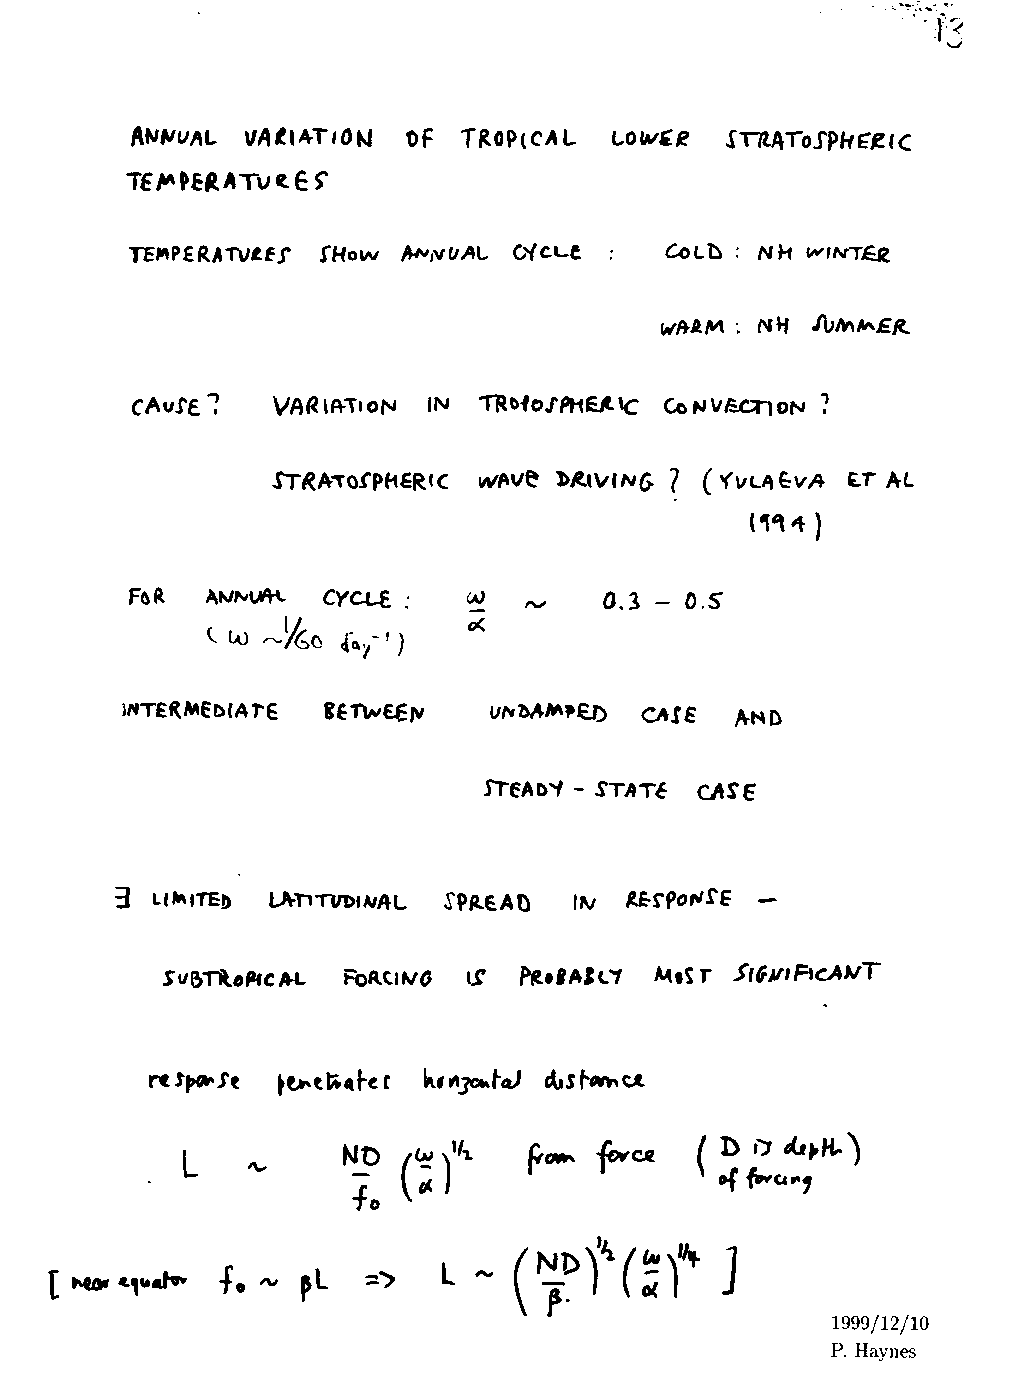 13
ANNUAL VARIATION OF TROPICAL LOWER STRATOSPHERIC
TEMPERATURES
TEMPERATURES SHOW ANNUAL CYCLE : COLD : NH WINTER
WARM : NH SUMMER
CAUSE? VARIATION IN TROPOSPHERIC CONVECTION ?
STRATOSPHERIC WAVE DRIVING ? (YULAEVA ET AL
1994)
FOR ANNUAL CYCLE : ω/α ~ 0.3 - 0.5
(ω ~ 1/60 day⁻¹)
INTERMEDIATE BETWEEN UNDAMPED CASE AND
STEADY - STATE CASE
∃ LIMITED LATITUDINAL SPREAD IN RESPONSE -
SUBTROPICAL FORCING IS PROBABLY MOST SIGNIFICANT
response penetrates horizontal distance
L ~ ND/f₀ (ω/α)^1/2 from force (D is depth of forcing)
[near equator f₀ ~ βL => L ~ (ND/β)^1/2 (ω/α)^1/4]
1999/12/10
P. Haynes